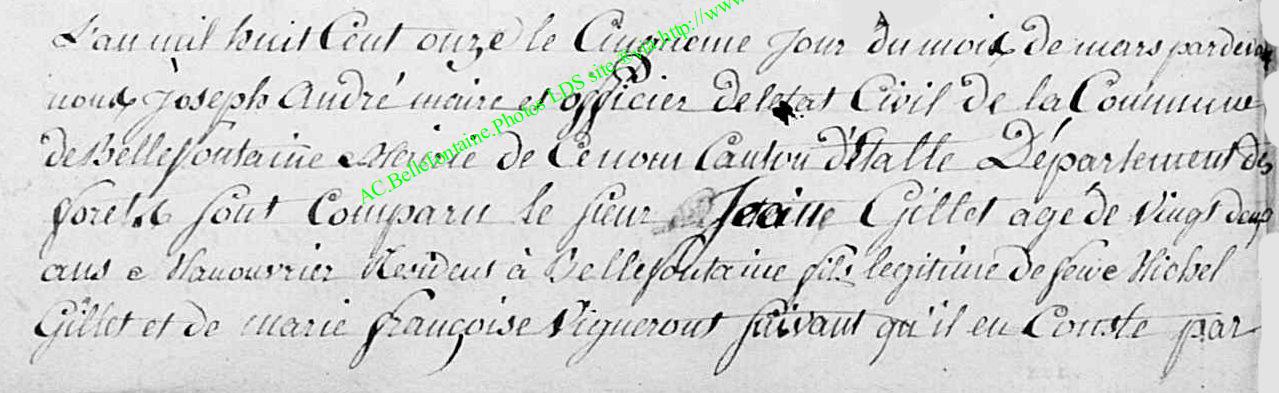 L'an mil huit Cent onze le Cinquieme jour du mois de mars pardevant
nous joseph André maire et officier de letat Civil de la Commune
de Bellefontaine Mairie de Ce nom Canton d'Etalle Département des
forets sont Comparu le sieur Gillet agé de Vingt deux
ans Manouvrier Resident à Bellefontaine fils legitime de feue Michel
Gillet et de marie françoise Vigneront suivant qu'il en Conste par
AC.Bellefontaine.Photos LDS site via http://www.